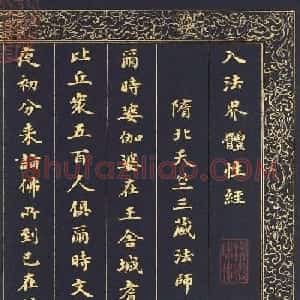 入法界體性經
隋北天竺三藏法師
爾時婆伽婆在王舍城耆
比丘衆五百人俱爾時文
夜初分來詣佛所到已在
shufaziliao.com